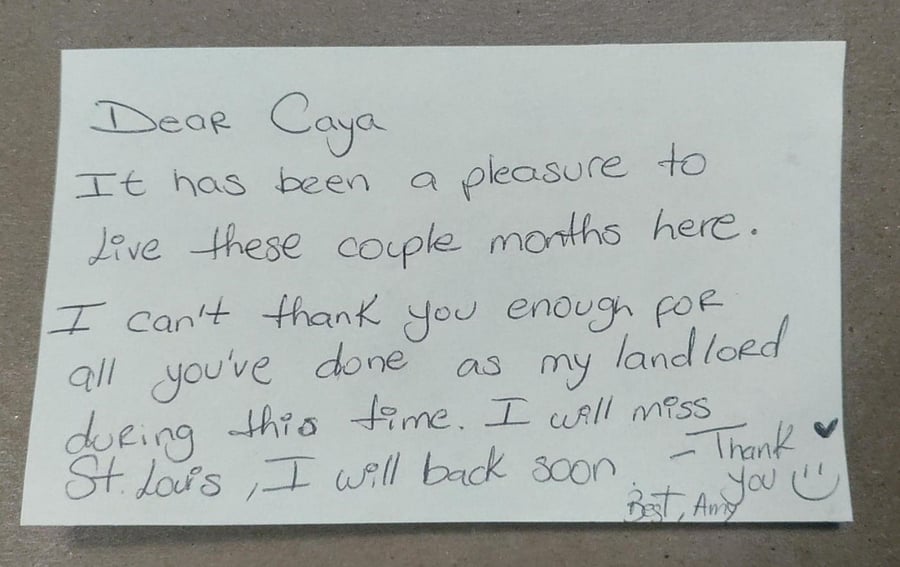 Dear Caya
It has been a pleasure to
Live these couple months here.
I can't thank you enough for
all you've done as my landlord
during this time. I will miss
St. Louis, I will back soon.
- Thank ♥
you :)
Best, Amy